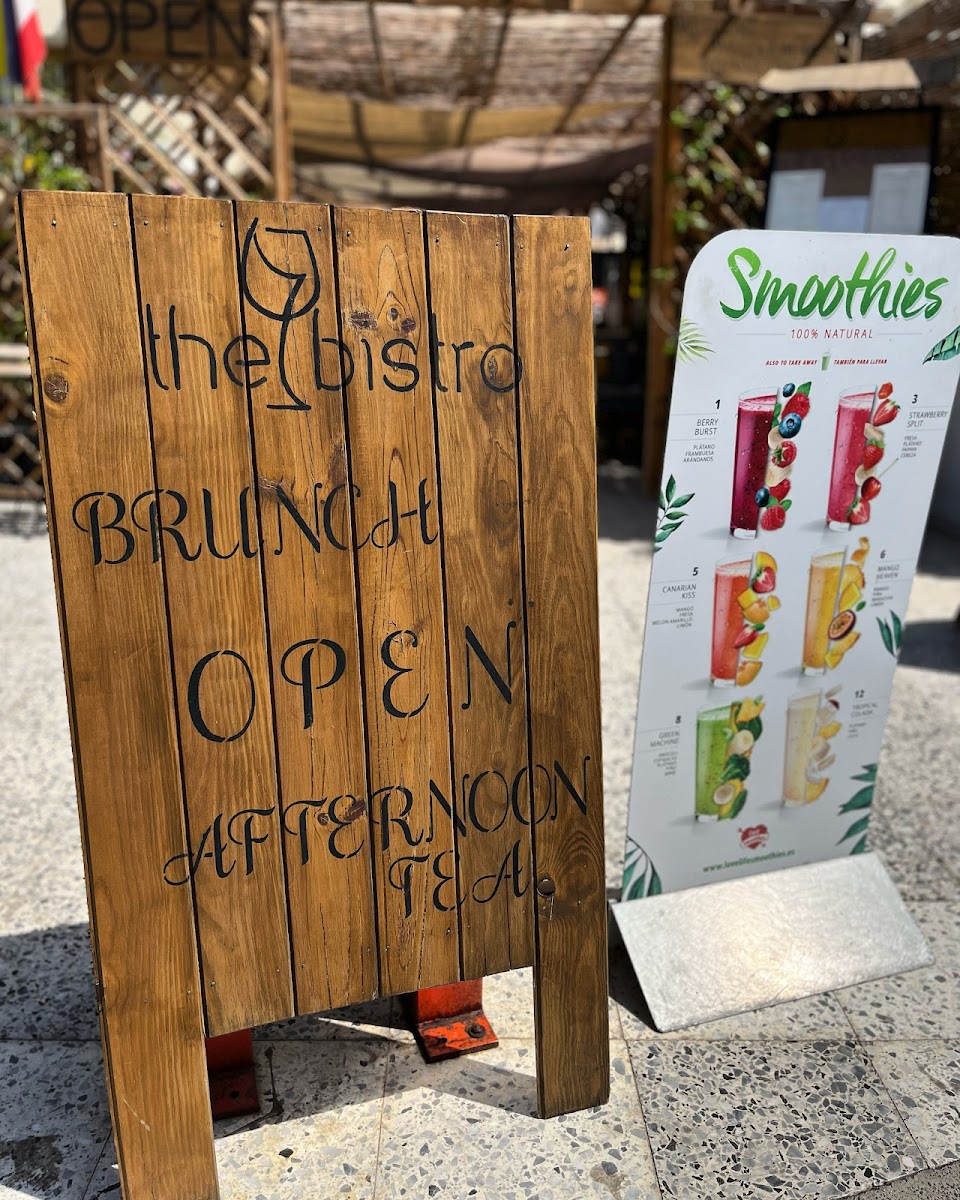 OPEN
the bistro
BRUNCH
OPEN
AFTERNOON
TEA
Smoothies
100% NATURAL
ALSO TO TAKE AWAY TAMBIÉN PARA LLEVAR
1
BERRY
BURST
PLÁTANO
FRAMBUESA
ARÁNDANOS
3
STRAWBERRY
SPLIT
FRESA
PLÁTANO
PAPAYA
CEREZA
5
CANARIAN
KISS
MANGO
FRESA
MELON AMARILLO
LIMÓN
6
MANGO
HEAVEN
MANGO
PIÑA
MARACUYÁ
LIMÓN
8
GREEN
MACHINE
12
TROPICAL
COLADA
www.lovelifesmoothies.es